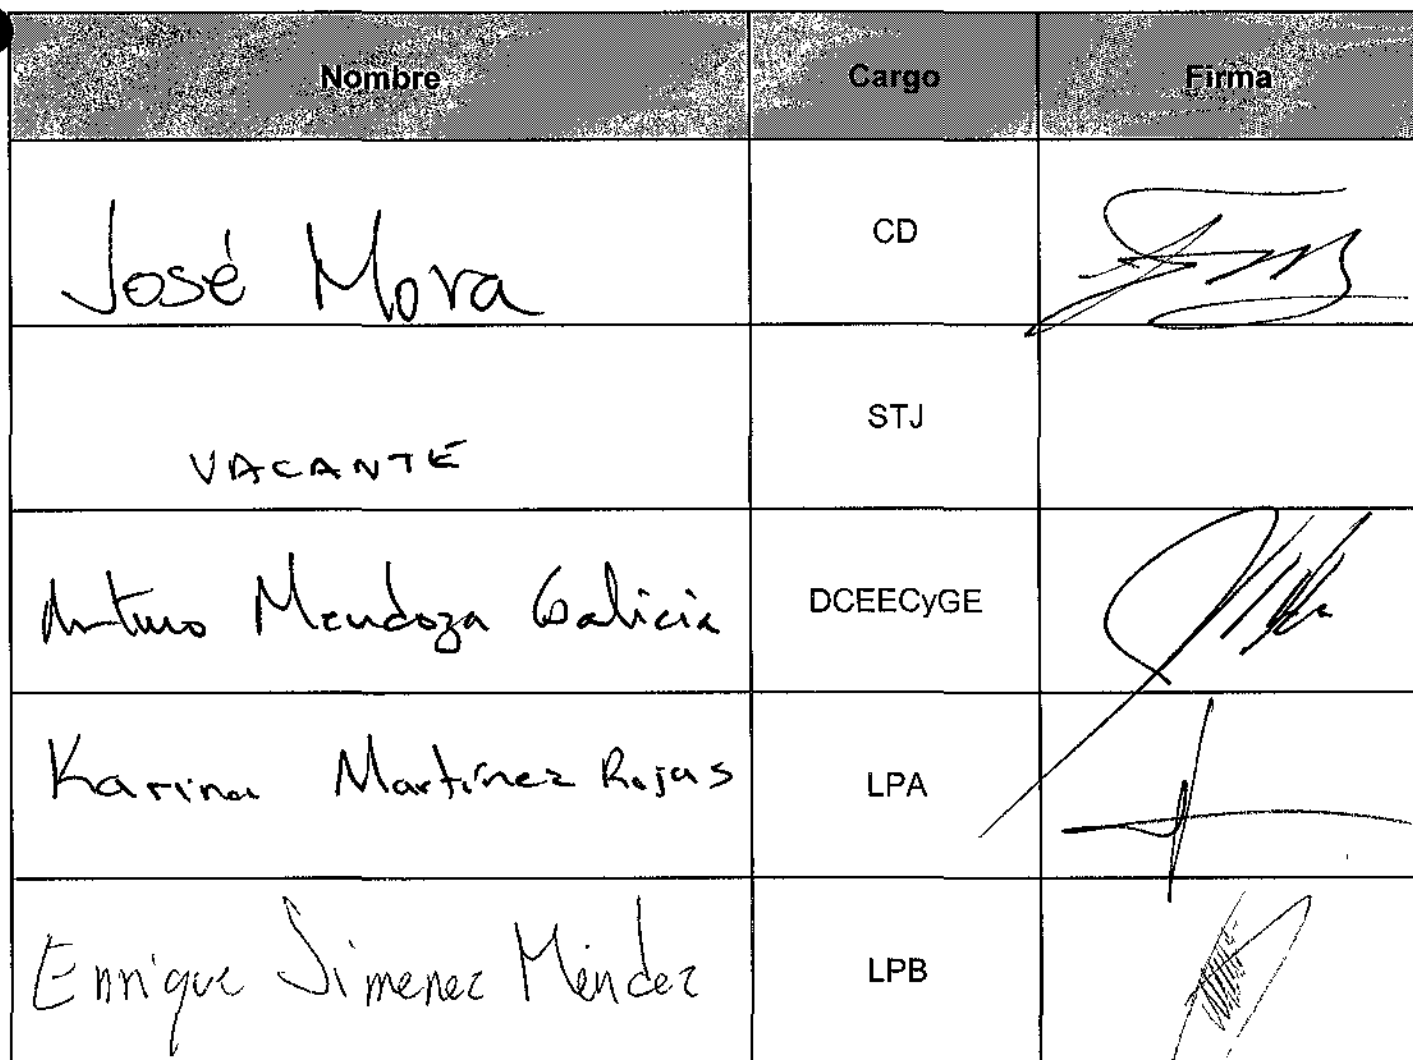 Nombre Cargo Firma
José Mora CD
VACANTE STJ
Arturo Mendoza Galicia DCEECyGE
Karina Martínez Rojas LPA
Enrique Jimenez Méndez LPB